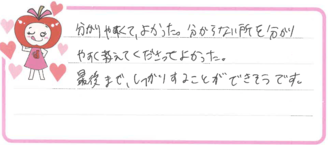 分かりやすくて、よかった。分からない所を分かり
やすく教えてくださってよかった。
最後まで、しっかりすることができそうです。